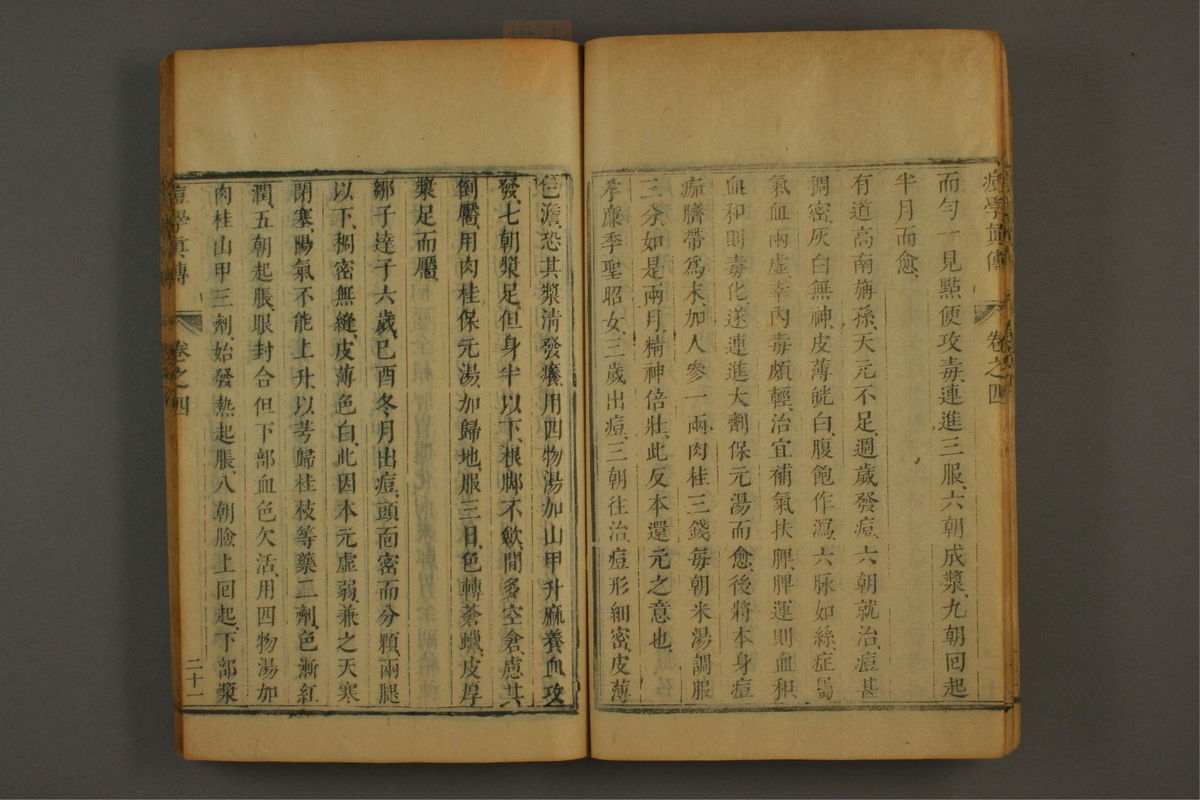 痘學眞傳 卷之四
而勻一見點便攻毒連進三服六朝成漿九朝回起
半月而愈
有道高南旃孫天元不足週歲發痘六朝就治痘甚
稠密灰白無神皮薄㿠白腹飽作瀉六脉如絲症屬
氣血兩虛幸內毒頗輕治宜補氣扶脾脾運則血和
血和則毒化遂連進大劑保元湯而愈後將本身痘
痂臍帶爲末加人參一兩肉桂三錢每朝米湯調服
三分如是兩月精神倍壯此反本還元之意也
孝廉季聖昭女三歲出痘三朝往治痘形細密皮薄
色澹恐其漿清發癢用四物湯加山甲升麻養血攻
發七朝漿足但身半以下根脚不歛間多空倉慮其
倒靨用肉桂保元湯加歸地服三日色轉蒼蠟皮厚
漿足而靨
鄒子逵子六歲己酉冬月出痘頭面密而分顆兩腿
以下稠密無縫皮薄色白此因本元虛弱兼之天寒
閉塞陽氣不能上升以芎歸桂枝等藥二劑色漸紅
潤五朝起脹眼封合但下部血色欠活用四物湯加
肉桂山甲三劑始發熱起脹八朝臉上回起下部漿
痘學眞傳 卷之四 二十一